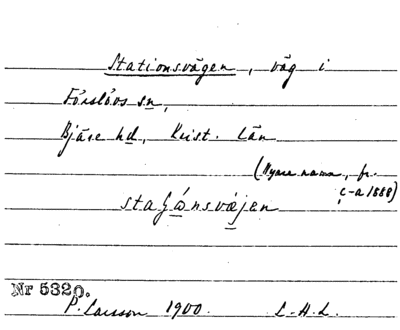 Stationsvägen, väg i
Förslövs sn,
Bjäre hd, Krist. län
(Nyare namn, fr.
c-a 1888)
staʃónsväjen
Nr 5320.
P. Larsson 1900. L-H.L.